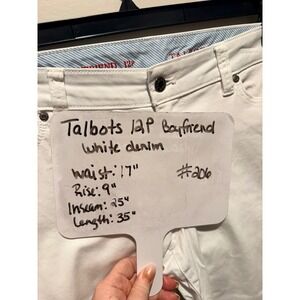 Talbots 12P Boyfriend
white denim
waist: 17"
#206
Rise: 9"
Inseam: 25"
Length: 35"